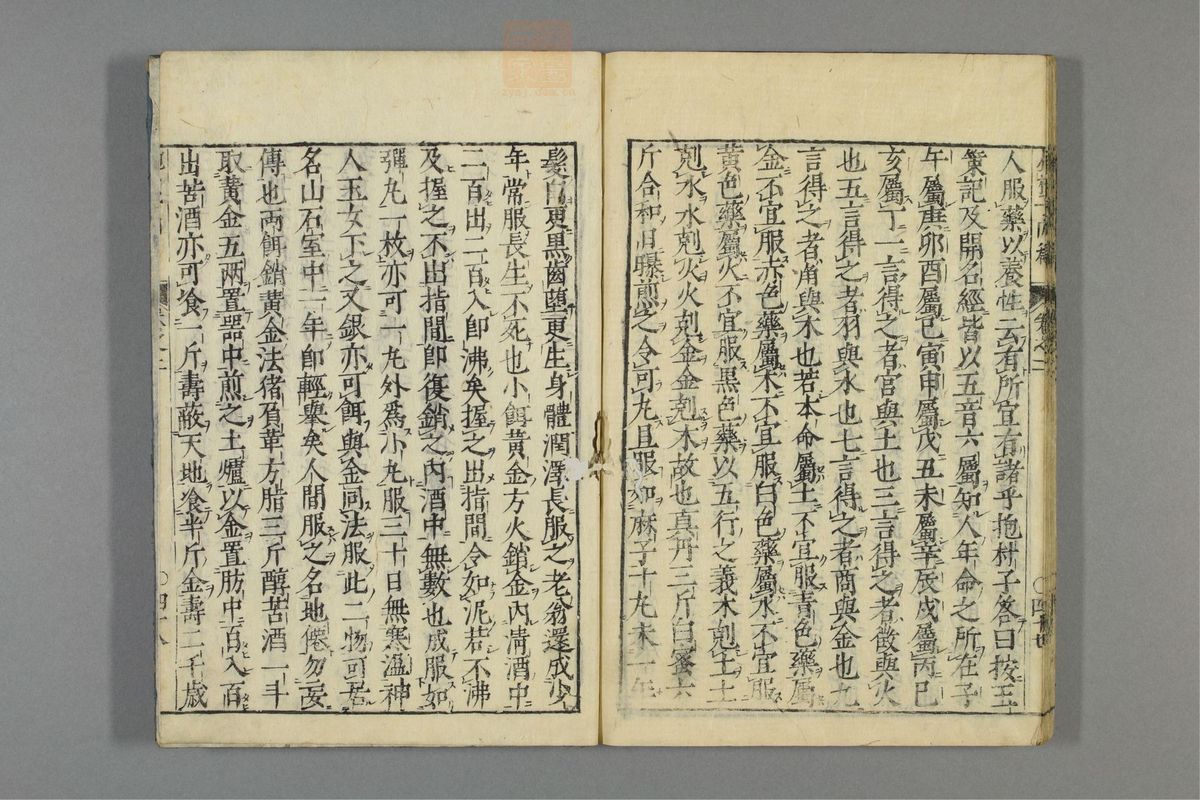 人服藥以養性云有所宜有諸乎抱朴子答曰按玉
策記及開名經皆以五音六屬知人年命之所在子
午屬庚卯酉屬己寅申屬戊丑未屬辛辰戌屬丙巳
亥屬丁一言得之者宮與土也三言得之者徵與火
也五言得之者羽與水也七言得之者商與金也九
言得之者角與木也若本命屬土不宜服青色藥屬
金不宜服赤色藥屬木不宜服白色藥屬水不宜服
黃色藥屬火不宜服黑色藥以五行之義木剋土土
剋水水剋火火剋金金剋木故也真丹三斤白蜜六
斤合和日曝煎之令可丸旦服如麻子十丸未一年
髮白更黒齒墮更生身體潤澤長服之老翁還成少
年常服長生不死也小餌黃金方火銷金內清酒中
二百出二百入即沸矣握之出指間令如泥若不沸
及握之不出指間即復銷之內酒中無數也成服如
彈丸一枚亦可一丸分爲小丸服三十日無寒温神
人玉女下之又銀亦可餌與金同法服此二物可居
名山石室中一年即輕舉矣人間服之名地僊勿妄
傳也兩餌銷黃金法猪負革方脂三斤醇苦酒一斗
取黃金五兩置器中煎之土爐以金置肪中百入百
出苦酒亦可飡一斤壽蔽天地飡半斤金壽二千歲
卷之二
四十八
zysj.com.cn